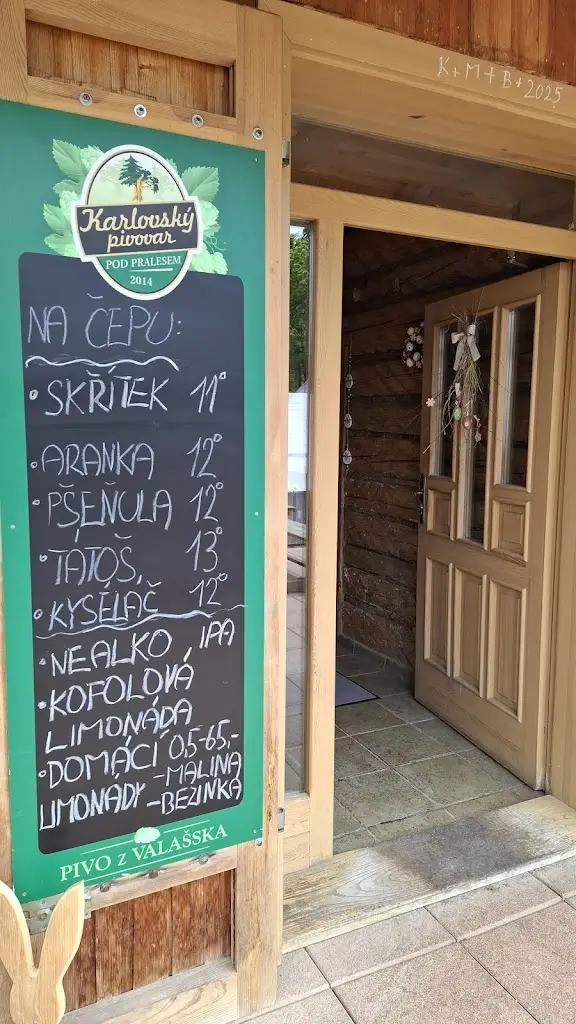 K+M+B+2025
Karlovský
pivovar
POD PRALESEM
2014
NA ČEPU:
• SKŘÍTEK 11°
• ARANKA 12°
• PŠEŇULA 12°
• TATOŠ, 13°
• KYSELÁČ 12°
• NEALKO, IPA
• KOFOLOVÁ
LIMONÁDA
• DOMÁCÍ 0,5-65,-
LIMONÁDY -MALINA
-BEZINKA
PIVO Z VALAŠSKA